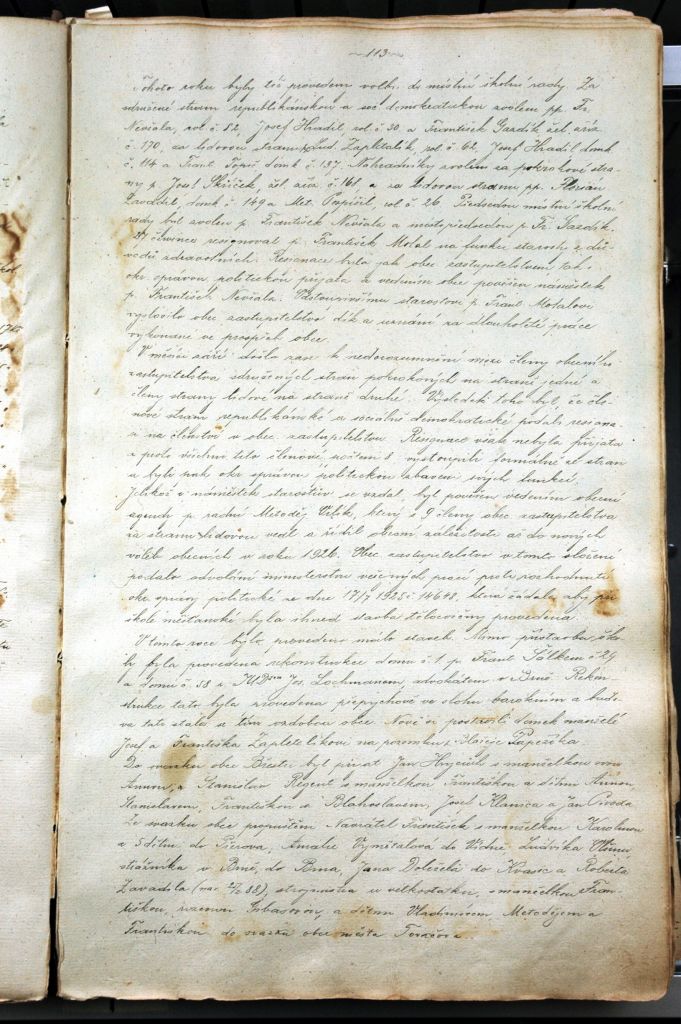 113
Tohoto roku byly též provedeny volby do místní školní rady. Za
sdružené strany republikánskou a soc. demokratickou zvoleni pp. Fr.
Nevěala, rol. č. 12, Josef Hradil, rol. č. 30 a František Gazdík žel. zříz.
č. 170, za lidovou stranu Lud. Zapletalík, rol. č. 62, Josef Hradil domk.
č. 114 a Frant. Topič domk. č. 137. Náhradníky zvoleni za pokrokové stra-
ny p. Josef Skříček, žel. zříz. č. 161, a za lidovou stranu pp. Florián
Zavadil, domk. č. 149 a Met. Pospíšil, rol. č. 26. Předsedou místní školní
rady byl zvolen p. František Nevěala a místopředsedou p. Fr. Gazdík.
července resignoval p. František Motal na funkci starosty z dů-
vodů zdravotních. Resignace byla jak obec. zastupitelstvem tak i
okr. správou politickou přijata a vedením obce pověřen náměstek
p. František Nevěala. Odstouplému starostovi p. Frant. Motalovi
vyslovilo obec. zastupitelstvo dík a uznání za dlouholeté práce
vykonané ve prospěch obce.
V měsíci září došlo zase k nedorozuměním mezi členy obecního
zastupitelstva sdružených stran pokrokových na straně jedné a
členy strany lidové na straně druhé. Výsledek toho byl, že čle-
nové stran republikánské a sociálně demokratické podali resigna-
ci na členství v obec. zastupitelstvu. Resignace však nebyla přijata
a proto všichni tito členové, počtem 8 vystoupili formálně ze stran
a byli pak okr. správou politickou zbaveni svých funkcí.
Jelikož i náměstek starostův se vzdal, byl pověřen vedením obecní
agendy p. radní Metoděj Vlčík, který s 9 členy obec. zastupitelstva
za stranu lidovou vedl a řídil obecní záležitosti až do nových
voleb obecních v roku 1926. Obec. zastupitelstvo v tomto složení
podalo odvolání ministerstvu veřejných prací proti rozhodnutí
okr. správy politické ze dne 17/7 1925 č. 14698, která žádala aby při
škole měšťanské byla ihned stavba tělocvičny provedena.
V tomto roce bylo provedeno málo staveb. Mimo přístavbu ško-
ly byla provedena rekonstrukce domu č. 1 p. Frant. Šálkem č. 29
a domu č. 58 p. JUDrem Jos. Lochmanem advokátem v Brně. Rekon-
strukce tato byla provedena přepychově ve slohu barokním a budo-
va tato stala se tím ozdobou obce. Nově si postavili domek manželé
Josef a Františka Zapletalíkovi na pozemku p. Blažeje Papežíka.
Do svazku obce Břestu byl přijat Jan Hrycíšk s manželkou svou
Annou, a Stanislav Regent s manželkou Františkou a dětmi Annou,
Stanislavem, Františkou a Blahoslavem, Josef Klanica a Jan Svoboda.
Ze svazku obce propuštěn Navrátil František s manželkou Karolinou
a 5 dětmi do Přerova, Amalie Vymětalova do Vídně, Ludvíka
strážníka v Brně, do Brna, Jana Doležela do Kvasic a Roberta
Zavadila (nar. 88), strojníka u velkostatku, s manželkou Fran-
tiškou, rozenou a dětmi Vladimírem Metodějem a
Františkou do svazku obce města Tovačova.